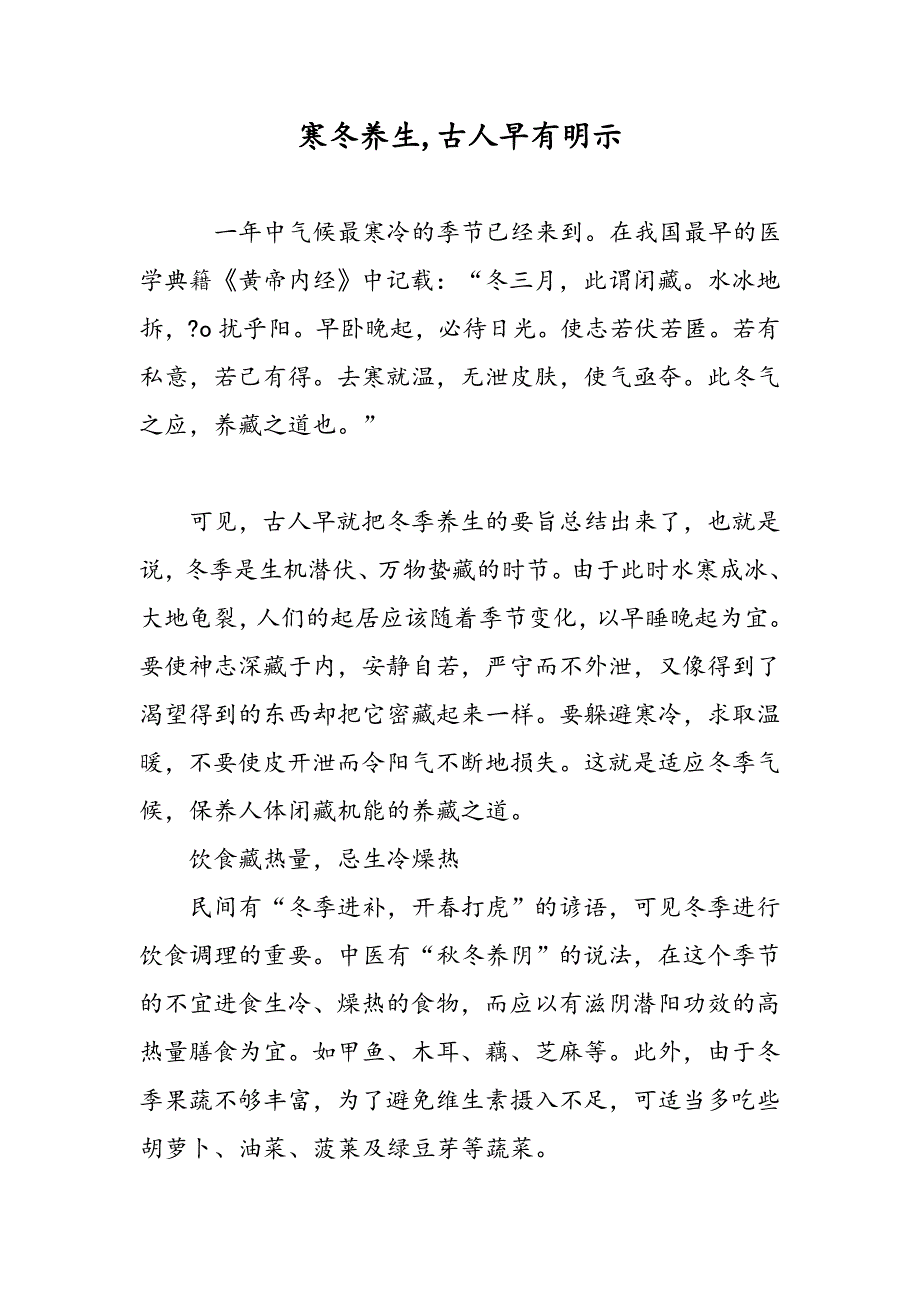 寒冬养生,古人早有明示
一年中气候最寒冷的季节已经来到。在我国最早的医
学典籍《黄帝内经》中记载：“冬三月，此谓闭藏。水冰地
拆，?o 扰乎阳。早卧晚起，必待日光。使志若伏若匿。若有
私意，若己有得。去寒就温，无泄皮肤，使气亟夺。此冬气
之应，养藏之道也。”
可见，古人早就把冬季养生的要旨总结出来了，也就是
说，冬季是生机潜伏、万物蛰藏的时节。由于此时水寒成冰、
大地龟裂，人们的起居应该随着季节变化，以早睡晚起为宜。
要使神志深藏于内，安静自若，严守而不外泄，又像得到了
渴望得到的东西却把它密藏起来一样。要躲避寒冷，求取温
暖，不要使皮开泄而令阳气不断地损失。这就是适应冬季气
候，保养人体闭藏机能的养藏之道。
饮食藏热量，忌生冷燥热
民间有“冬季进补，开春打虎”的谚语，可见冬季进行
饮食调理的重要。中医有“秋冬养阴”的说法，在这个季节
的不宜进食生冷、燥热的食物，而应以有滋阴潜阳功效的高
热量膳食为宜。如甲鱼、木耳、藕、芝麻等。此外，由于冬
季果蔬不够丰富，为了避免维生素摄入不足，可适当多吃些
胡萝卜、油菜、菠菜及绿豆芽等蔬菜。